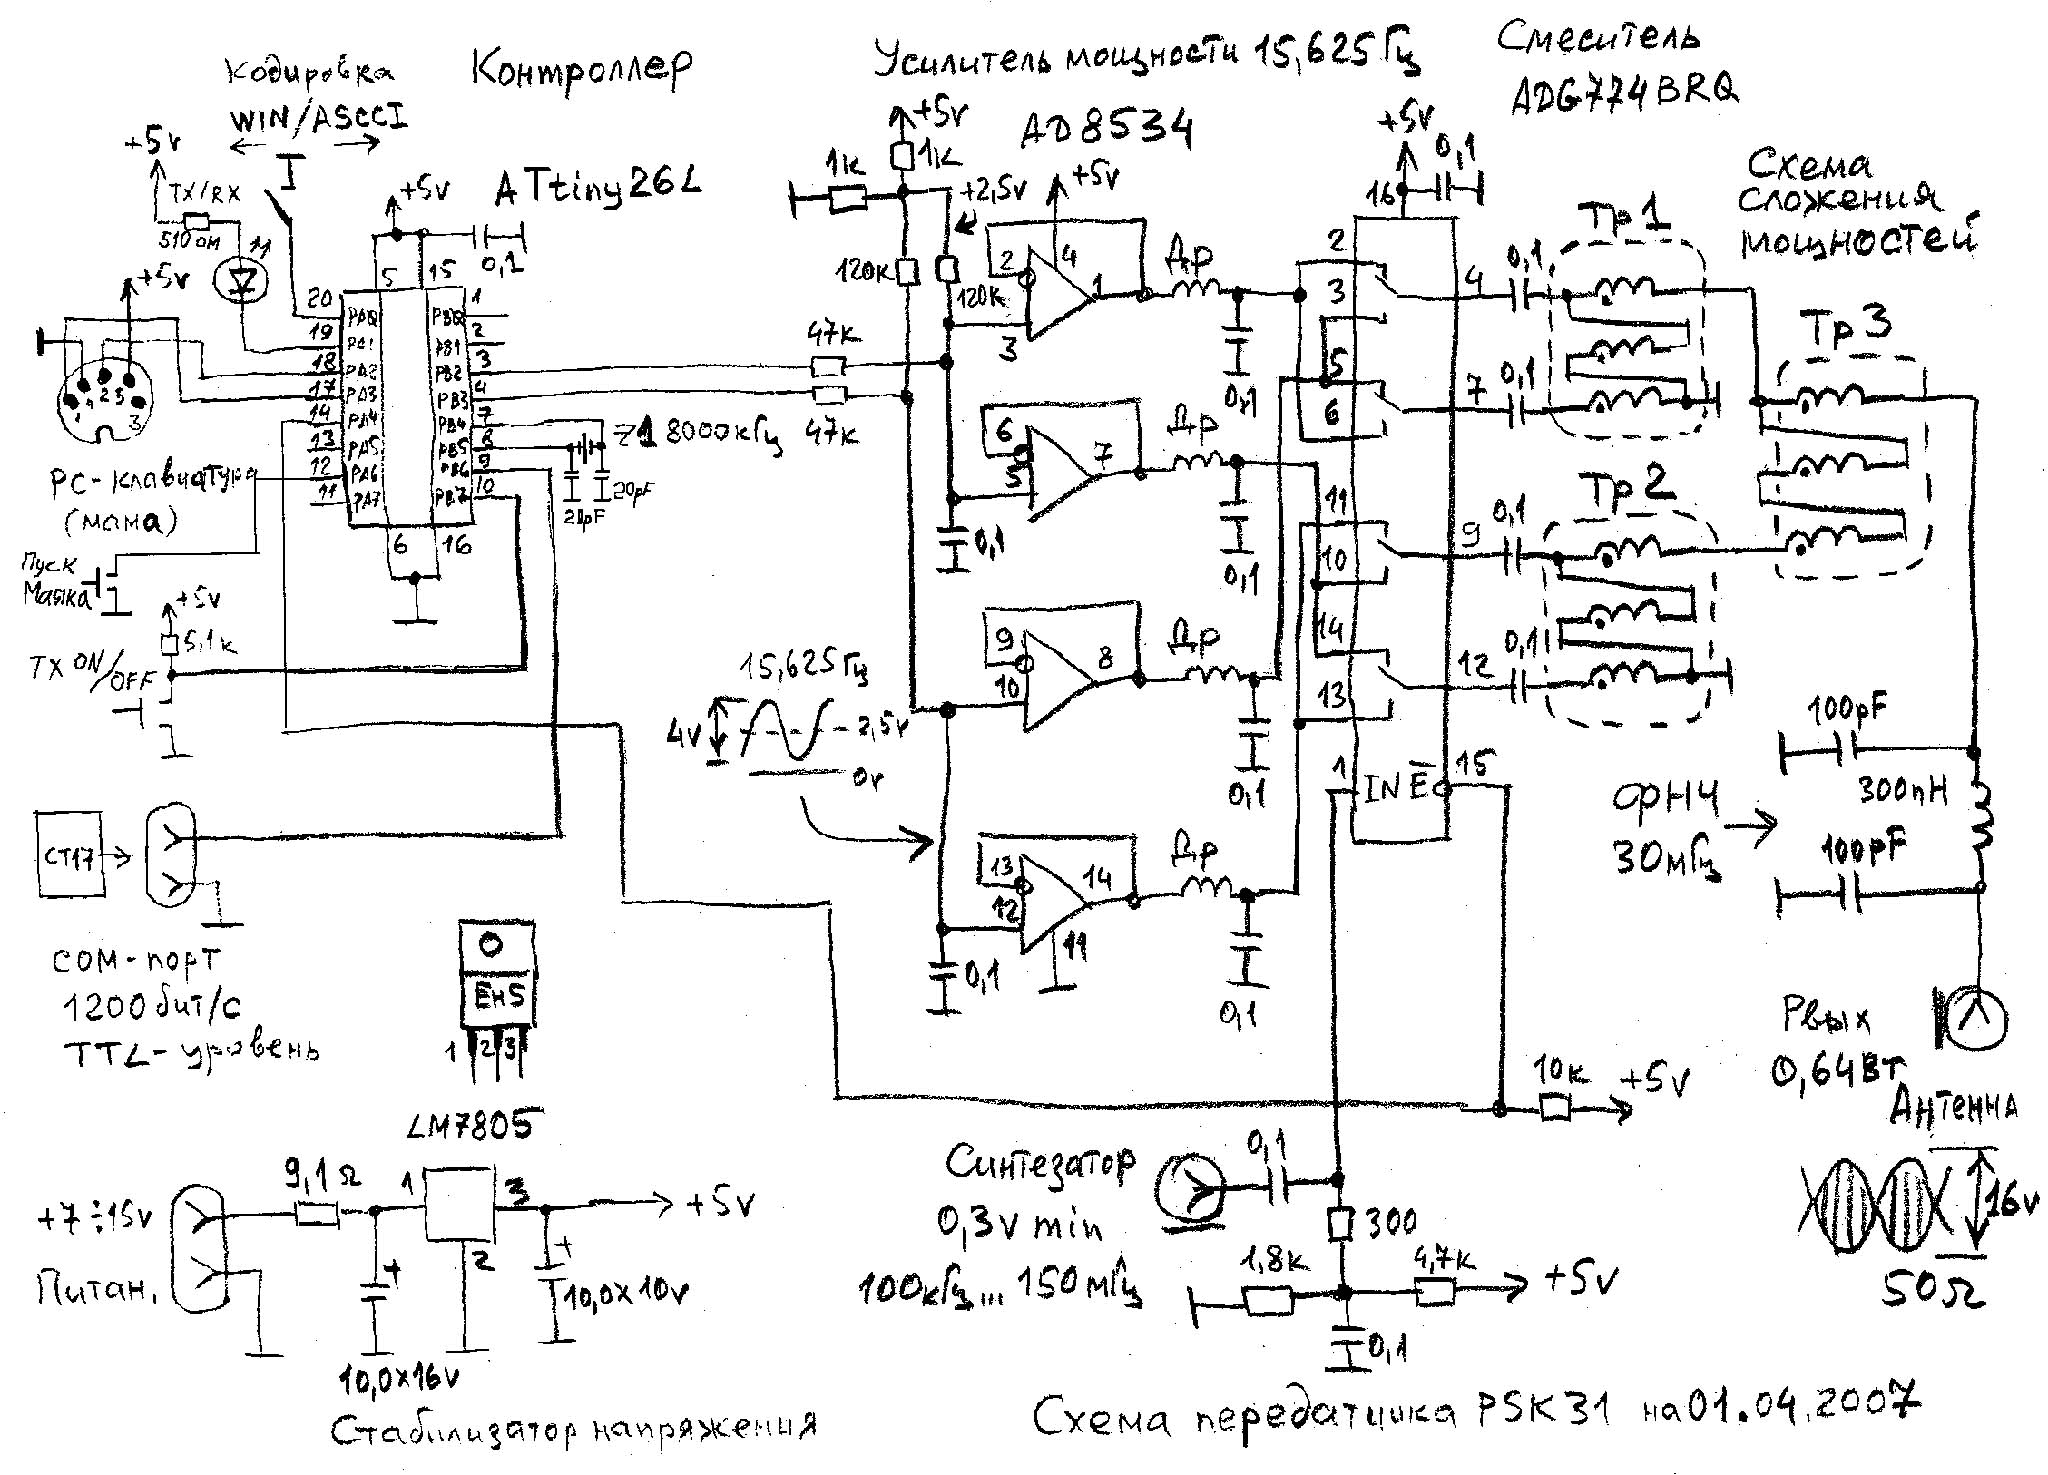 Кодировка
WIN/ASCCI
Контроллер
Усилитель мощности 15,625Гц
Смеситель
ADG774BRQ
+5v
TX/RX
510 ом
11
+5v
ATtiny26L
+5v
0,1
5
15
20
19
18
17
14
13
12
11
PA0
PA1
PA2
PA3
PA4
PA5
PA6
PA7
PB0
PB1
PB2
PB3
PB4
PB5
PB6
PB7
1
2
3
4
7
8
9
10
6
16
1
4
2
5
3
PC-клавиатура
(мама)
Пуск
Маяка
+5v
5,1к
TX ON/OFF
Z1 8000кГц
20pF
20pF
47к
47к
+5v
1к
1к
AD8534
+2,5v
+5v
120к
120к
2
3
4
1
Др
0,1
6
5
7
Др
0,1
0,1
9
10
8
Др
0,1
13
12
14
11
Др
0,1
0,1
15,625Гц
4v
2,5v
0v
+5v
0,1
16
2
3
5
6
11
10
14
13
1
IN
E
15
4
7
9
12
0,1
0,1
0,1
0,1
Тр1
Тр2
Схема
сложения
мощностей
Тр3
100pF
300nH
100pF
ФНЧ
30мГц
Рвых
0,64Вт
Антенна
16v
50Ω
СТ17
COM-порт
1200бит/с
TTL-уровень
ЕН5
1
2
3
LM7805
+7÷15v
Питан.
9,1Ω
1
3
2
+5v
+
+
10,0x10v
10,0x16v
Стабилизатор напряжения
10к
+5v
Синтезатор
0,3v min
100кГц...150мГц
0,1
300
1,8к
4,7к
+5v
0,1
Схема передатчика PSK31 на 01.04.2007